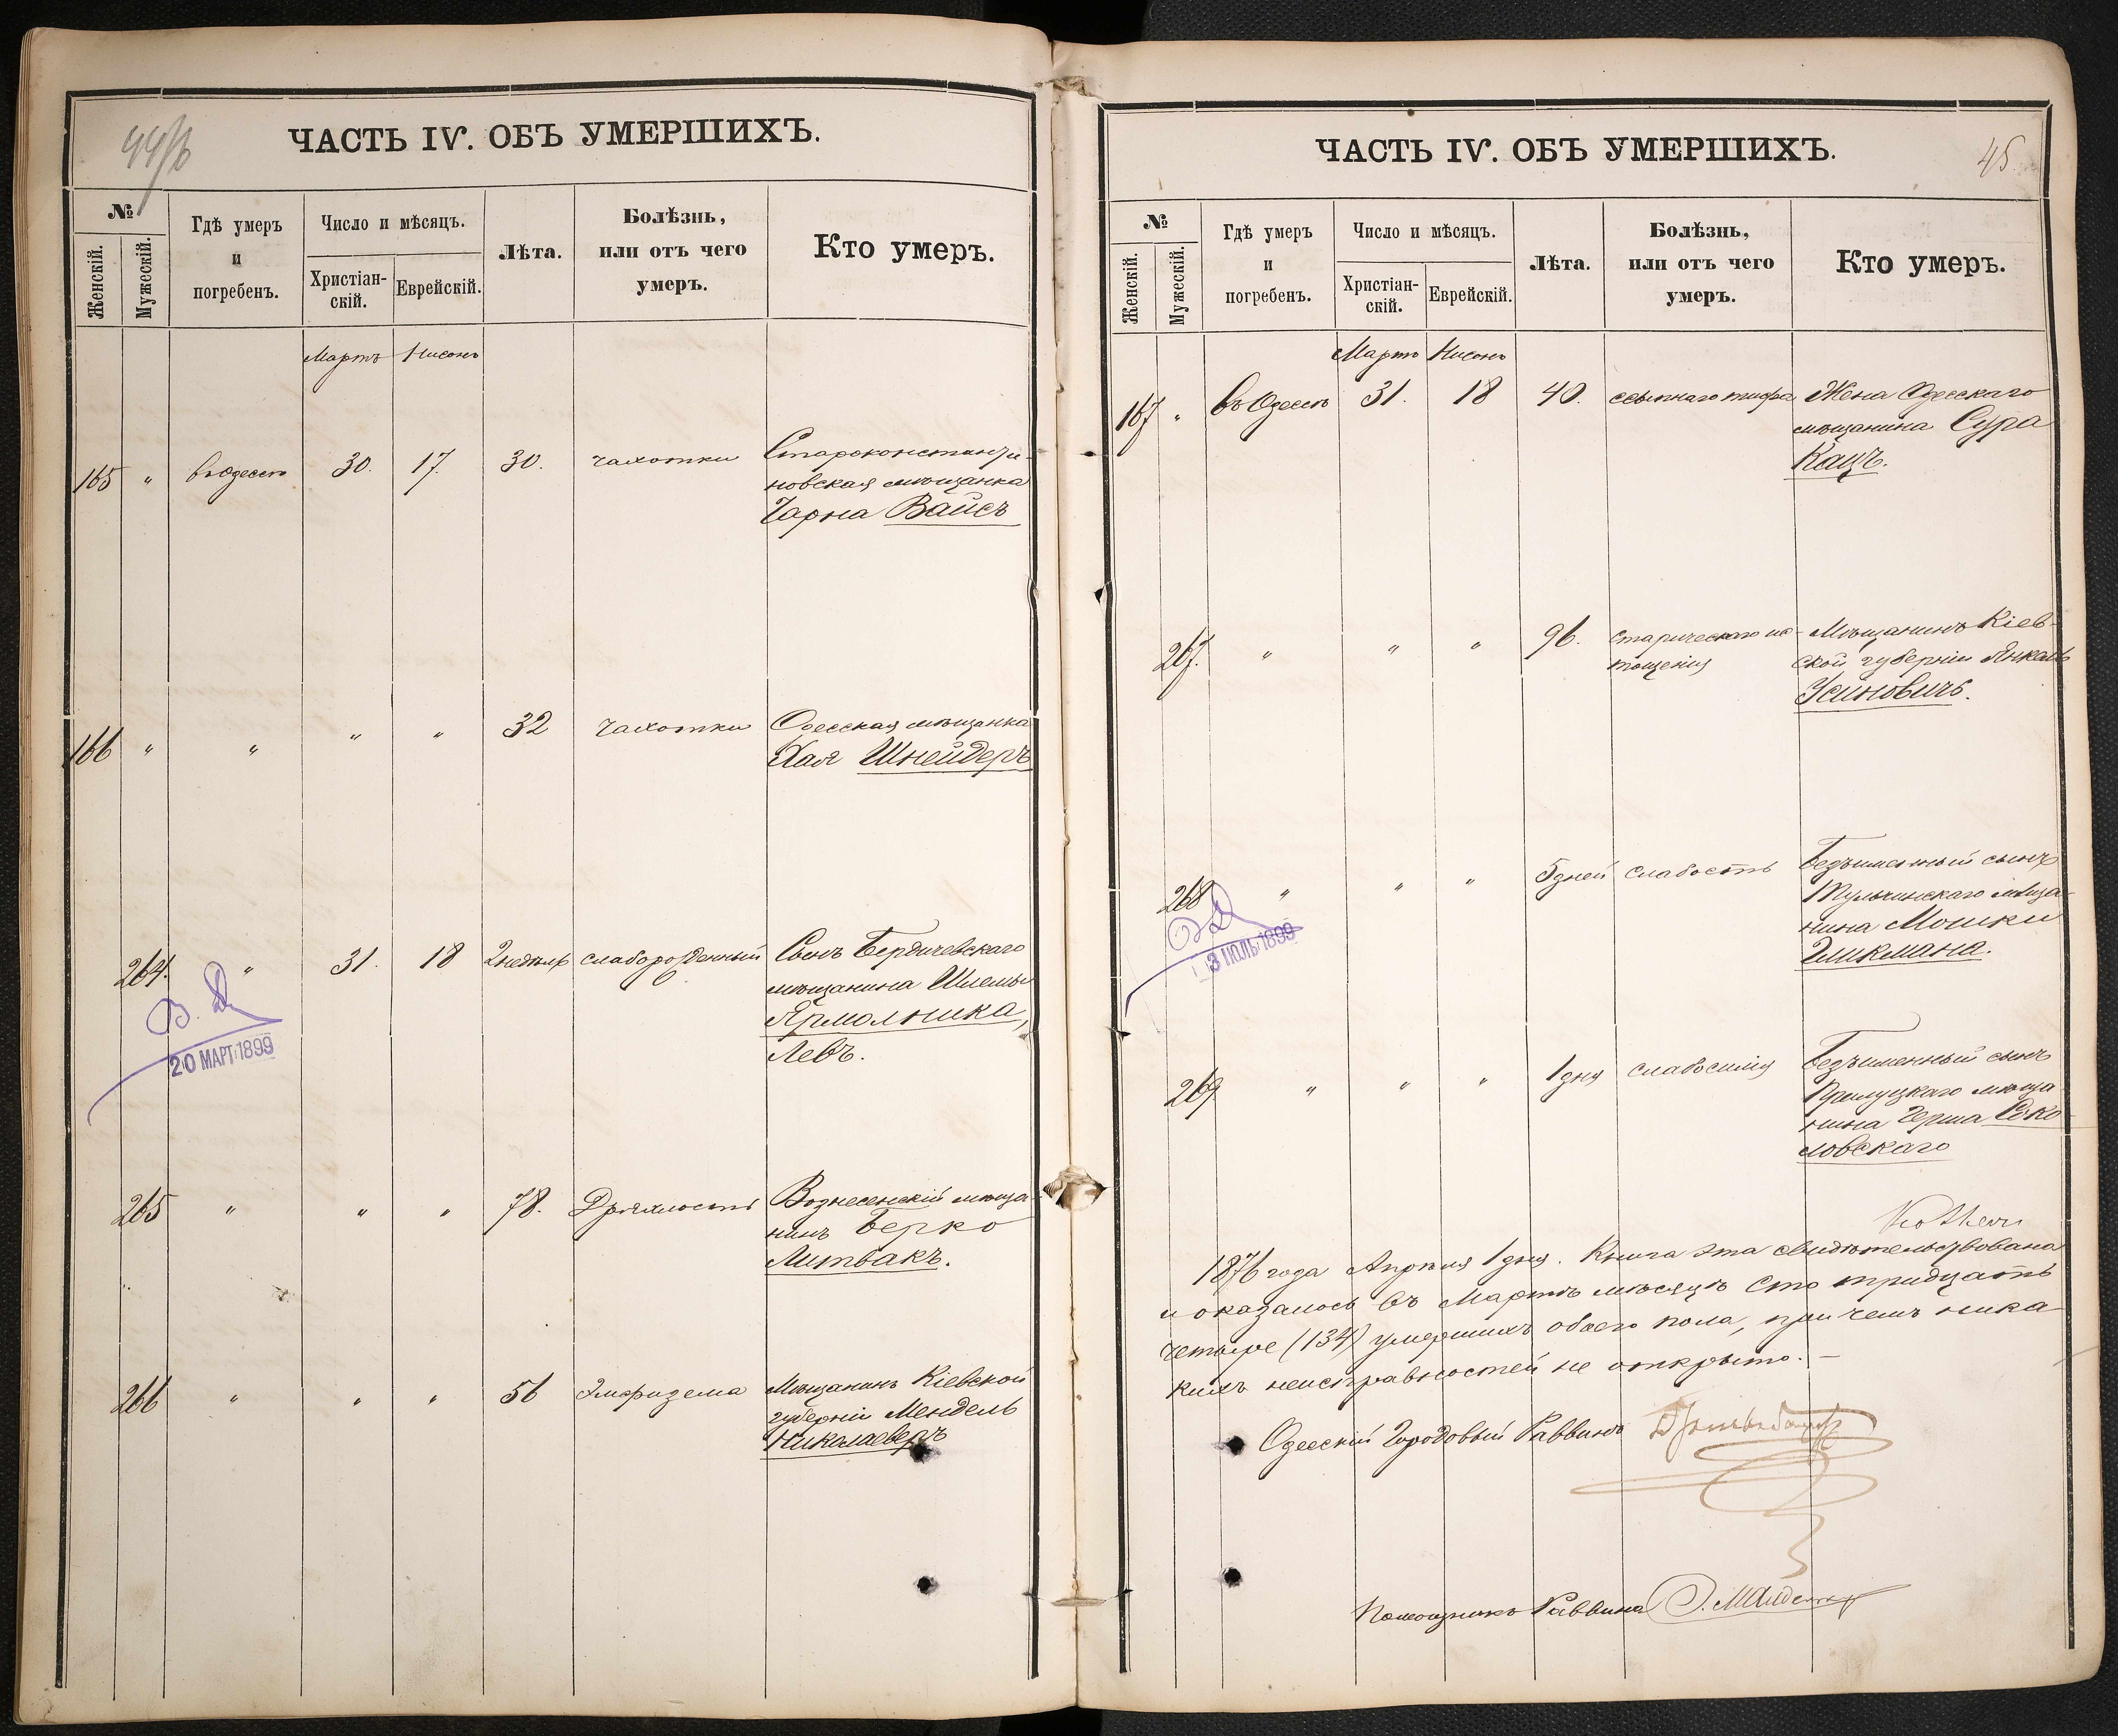 44/б
ЧАСТЬ IV. ОБЪ УМЕРШИХЪ.
№
Женскій.
Мужескій.
Гдѣ умеръ
и
погребенъ.
Число и мѣсяцъ.
Христіан-
скій.
Еврейскій.
Лѣта.
Болѣзнь,
или отъ чего
умеръ.
Кто умеръ.
Мартъ Нисонъ
165 " въ Одессѣ 30. 17. 30. чахотки Староконстанти-
новская мѣщанка
Чарна Вайсъ
166 " " " " 32 чахотки Одесская мѣщанка
Хая Шнейдеръ
264. " 31. 18 2 недѣль слаборожденный Сынъ Бердичевскаго
мѣщанина Шлемы
Ярмольника,
Левъ.
В. Д.
20 МАРТ 1899
265 " " " 78. Дряхлость Вознесенскій мѣща-
нинъ Берко
Литвакъ.
266 " " " 56 Эмфизема Мѣщанинъ Кіевской
губерніи Мендель
Николаеверъ
45.
ЧАСТЬ IV. ОБЪ УМЕРШИХЪ.
№
Женскій.
Мужескій.
Гдѣ умеръ
и
погребенъ.
Число и мѣсяцъ.
Христіан-
скій.
Еврейскій.
Лѣта.
Болѣзнь,
или отъ чего
умеръ.
Кто умеръ.
Мартъ Нисонъ
167 " въ Одессѣ 31. 18 40. ссыпнаго тифа Жена Одесскаго
мѣщанина Сура
Кацъ.
267. " " " 96. старческаго ис-
тощенія
Мѣщанинъ Кіев-
ской губерніи Янкель
Усиновичъ.
268 " " " 5 дней слабость Безъименный сынъ
Тульчинскаго мѣща-
нина Мошки
Гликмана.
3 ІЮЛЬ 1899
269 " " " 1 дня слабосилія Безъименный сынъ
Прилуцкаго мѣща-
нина Герша Соко-
ловскаго
1876 года Апрѣля 1 дня. Книга эта свидѣтельствована
и оказалось въ Мартѣ мѣсяцѣ сто тридцать
четыре (134) умершихъ обоего пола, при чемъ ника-
кихъ неисправностей не открыто. –
Одесскій Городовый Раввинъ
Помощникъ Раввина